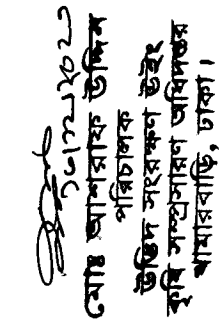 মোঃ আশরাফ উদ্দিন
পরিচালক
উদ্ভিদ সংরক্ষণ উইং
কৃষি সম্প্রসারণ অধিদপ্তর
খামারবাড়ি, ঢাকা।